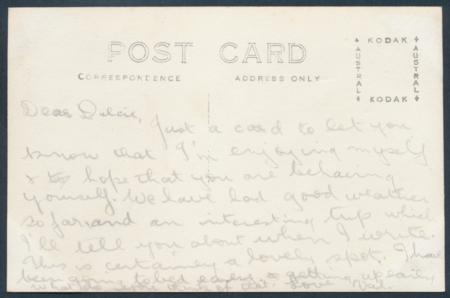 POST CARD
CORRESPONDENCE
ADDRESS ONLY
KODAK
AUSTRAL
AUSTRAL
KODAK
Dear Dulcie,
Just a card to let you
know that I'm enjoying myself
& hope that you are behaving
yourself. We have had good weather
so far, and an interesting trip which
I'll tell you about when I write.
This is certainly a lovely spot. I have
been going to bed early & getting up early,
what of that. Love Val.